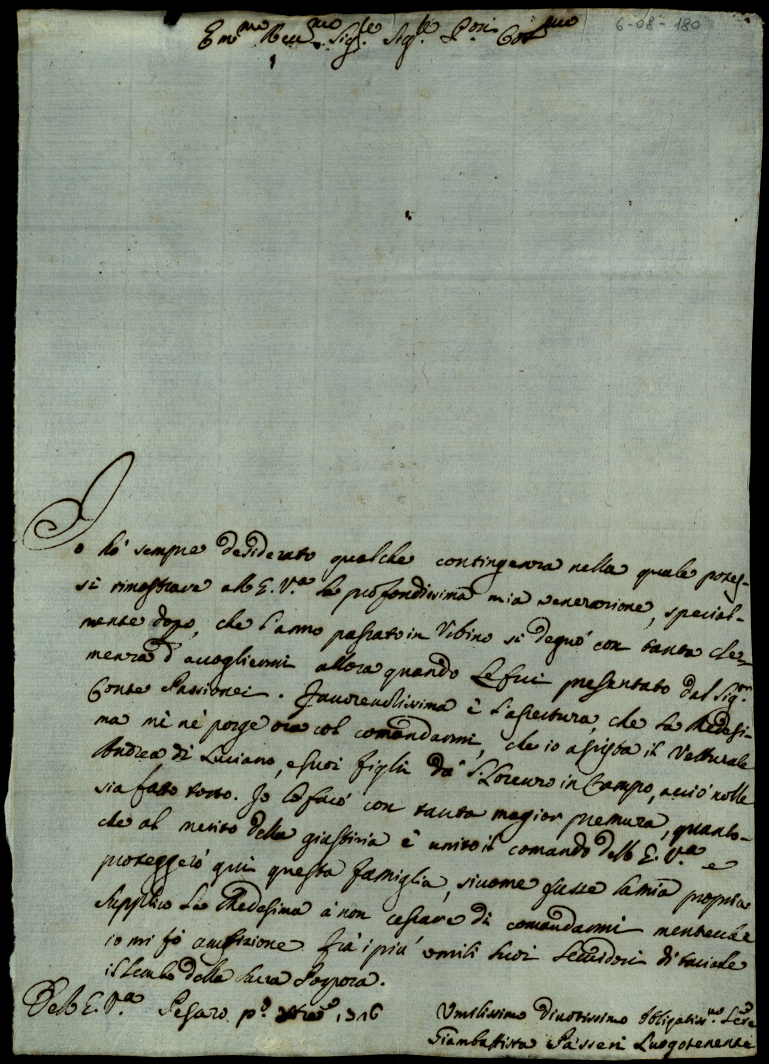 6-08-180
Em.mo Rev.mo Sig.re Sig.re P.ron Col.mo
Io hò sempre desiderato qualche contingenza nella quale potes-
si rimostrare all'E. V.a la profondissima mia venerazione, special-
mente dopo, che l'anno passato in Urbino si degnò con tanta cle-
menza d'accogliermi allora quando Le fui presentato dal Sig.r
Conte Passionei. Favorevolissima è l'apertura, che La Medesi-
ma mè nè porge ora col comandarmi, che io assista il Vetturale
Andrea di Luciano, e suoi figli da S. Lorenzo in Campo, acciò nolle
sia fatto torto. Io lo farò con tanta magior premura, quanto-
che al merito della giustizia è unito il comando dell'E. V.a e
proteggerò qui questa famiglia, sicome fusse la mia propria
Supplico La Medesima à non cessare di comandarmi mentecche
io mi fò ambizione frà i più umili suoi Servidori di baciarle
il Lembo della Sacra Porpora.
Dell'E. V.a Pesaro p.o
Umilissimo Divotissimo Obligatis.mo Ser.e
Giambattista Passeri Luogotenente